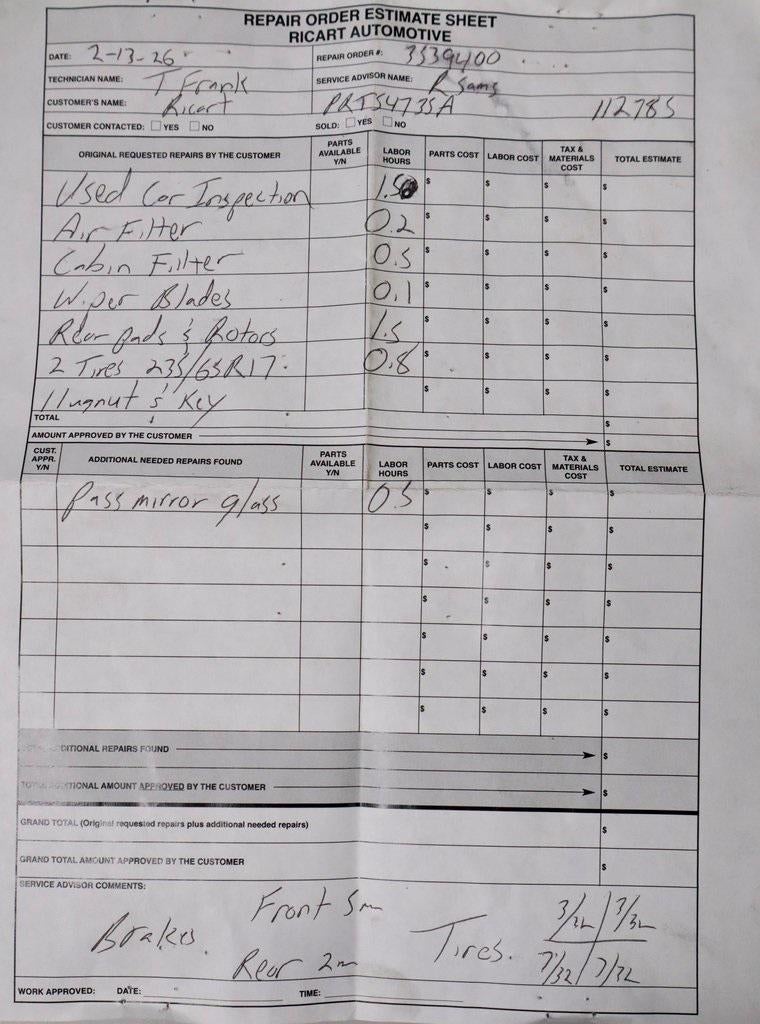 REPAIR ORDER ESTIMATE SHEET
RICART AUTOMOTIVE
DATE: 2-13-26 REPAIR ORDER #: 3539400
TECHNICIAN NAME: T Frank SERVICE ADVISOR NAME: R Sams
CUSTOMER'S NAME: Ricart PRTS4735A 112785
CUSTOMER CONTACTED: ☐ YES ☐ NO SOLD: ☐ YES ☐ NO
ORIGINAL REQUESTED REPAIRS BY THE CUSTOMER PARTS AVAILABLE Y/N LABOR HOURS PARTS COST LABOR COST TAX & MATERIALS COST TOTAL ESTIMATE
Used Car Inspection 1.50 $ $ $ $
Air Filter 0.2 $ $ $ $
Cabin Filter 0.5 $ $ $ $
Wiper Blades 0.1 $ $ $ $
Rear pads & Rotors 1.5 $ $ $ $
2 Tires 235/65R17 0.8 $ $ $ $
1 lugnut & Key $ $ $ $
TOTAL $
AMOUNT APPROVED BY THE CUSTOMER $
CUST. APPR. Y/N ADDITIONAL NEEDED REPAIRS FOUND PARTS AVAILABLE Y/N LABOR HOURS PARTS COST LABOR COST TAX & MATERIALS COST TOTAL ESTIMATE
Pass mirror glass 0.5 $ $ $ $
$ $ $ $
$ $ $ $
$ $ $ $
$ $ $ $
$ $ $ $
$ $ $ $
TOTAL ADDITIONAL REPAIRS FOUND $
TOTAL ADDITIONAL AMOUNT APPROVED BY THE CUSTOMER $
GRAND TOTAL (Original requested repairs plus additional needed repairs) $
GRAND TOTAL AMOUNT APPROVED BY THE CUSTOMER $
SERVICE ADVISOR COMMENTS:
Brakes. Front 5m
Rear 2m
Tires. 3/32 3/32
7/32 7/32
WORK APPROVED: DATE: TIME: